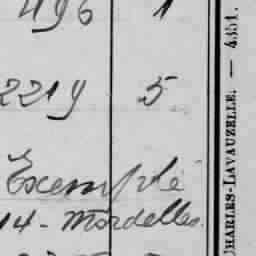 496 1
2219 5
Exempté
14 - Mordelles.
CHARLES-LAVAUZELLE. — 4351.